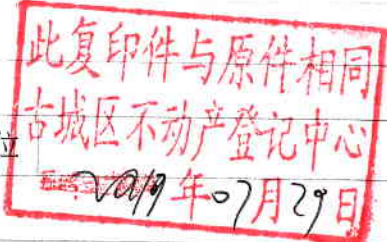 此复印件与原件相同
古城区不动产登记中心
立
2019年07月29日